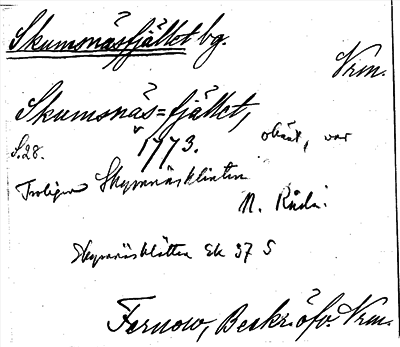 Skumsnäsfjället bg.
Vrm.
Skumsnäs=fjället,
S.28. 1773. obest, var
Troligen Skymnäsklinten
N. Råda.
Skymnäsklätten Ek 37 S
Fernow, Beskr. öfv. Vrm.